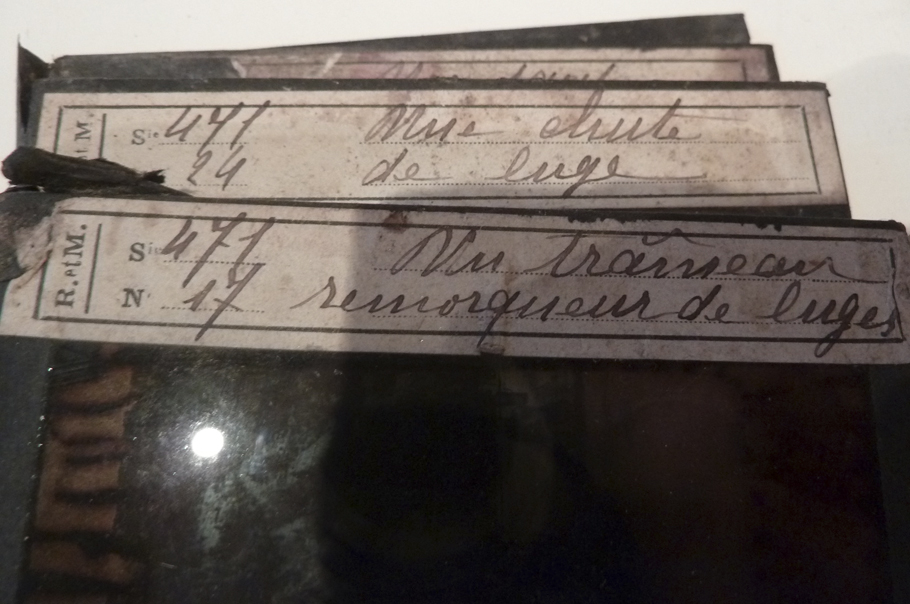 t M.
Sie 471 Une chute
24 de luge
R. et M.
Sie 471 Un traîneau
N° 17 remorqueur de luges